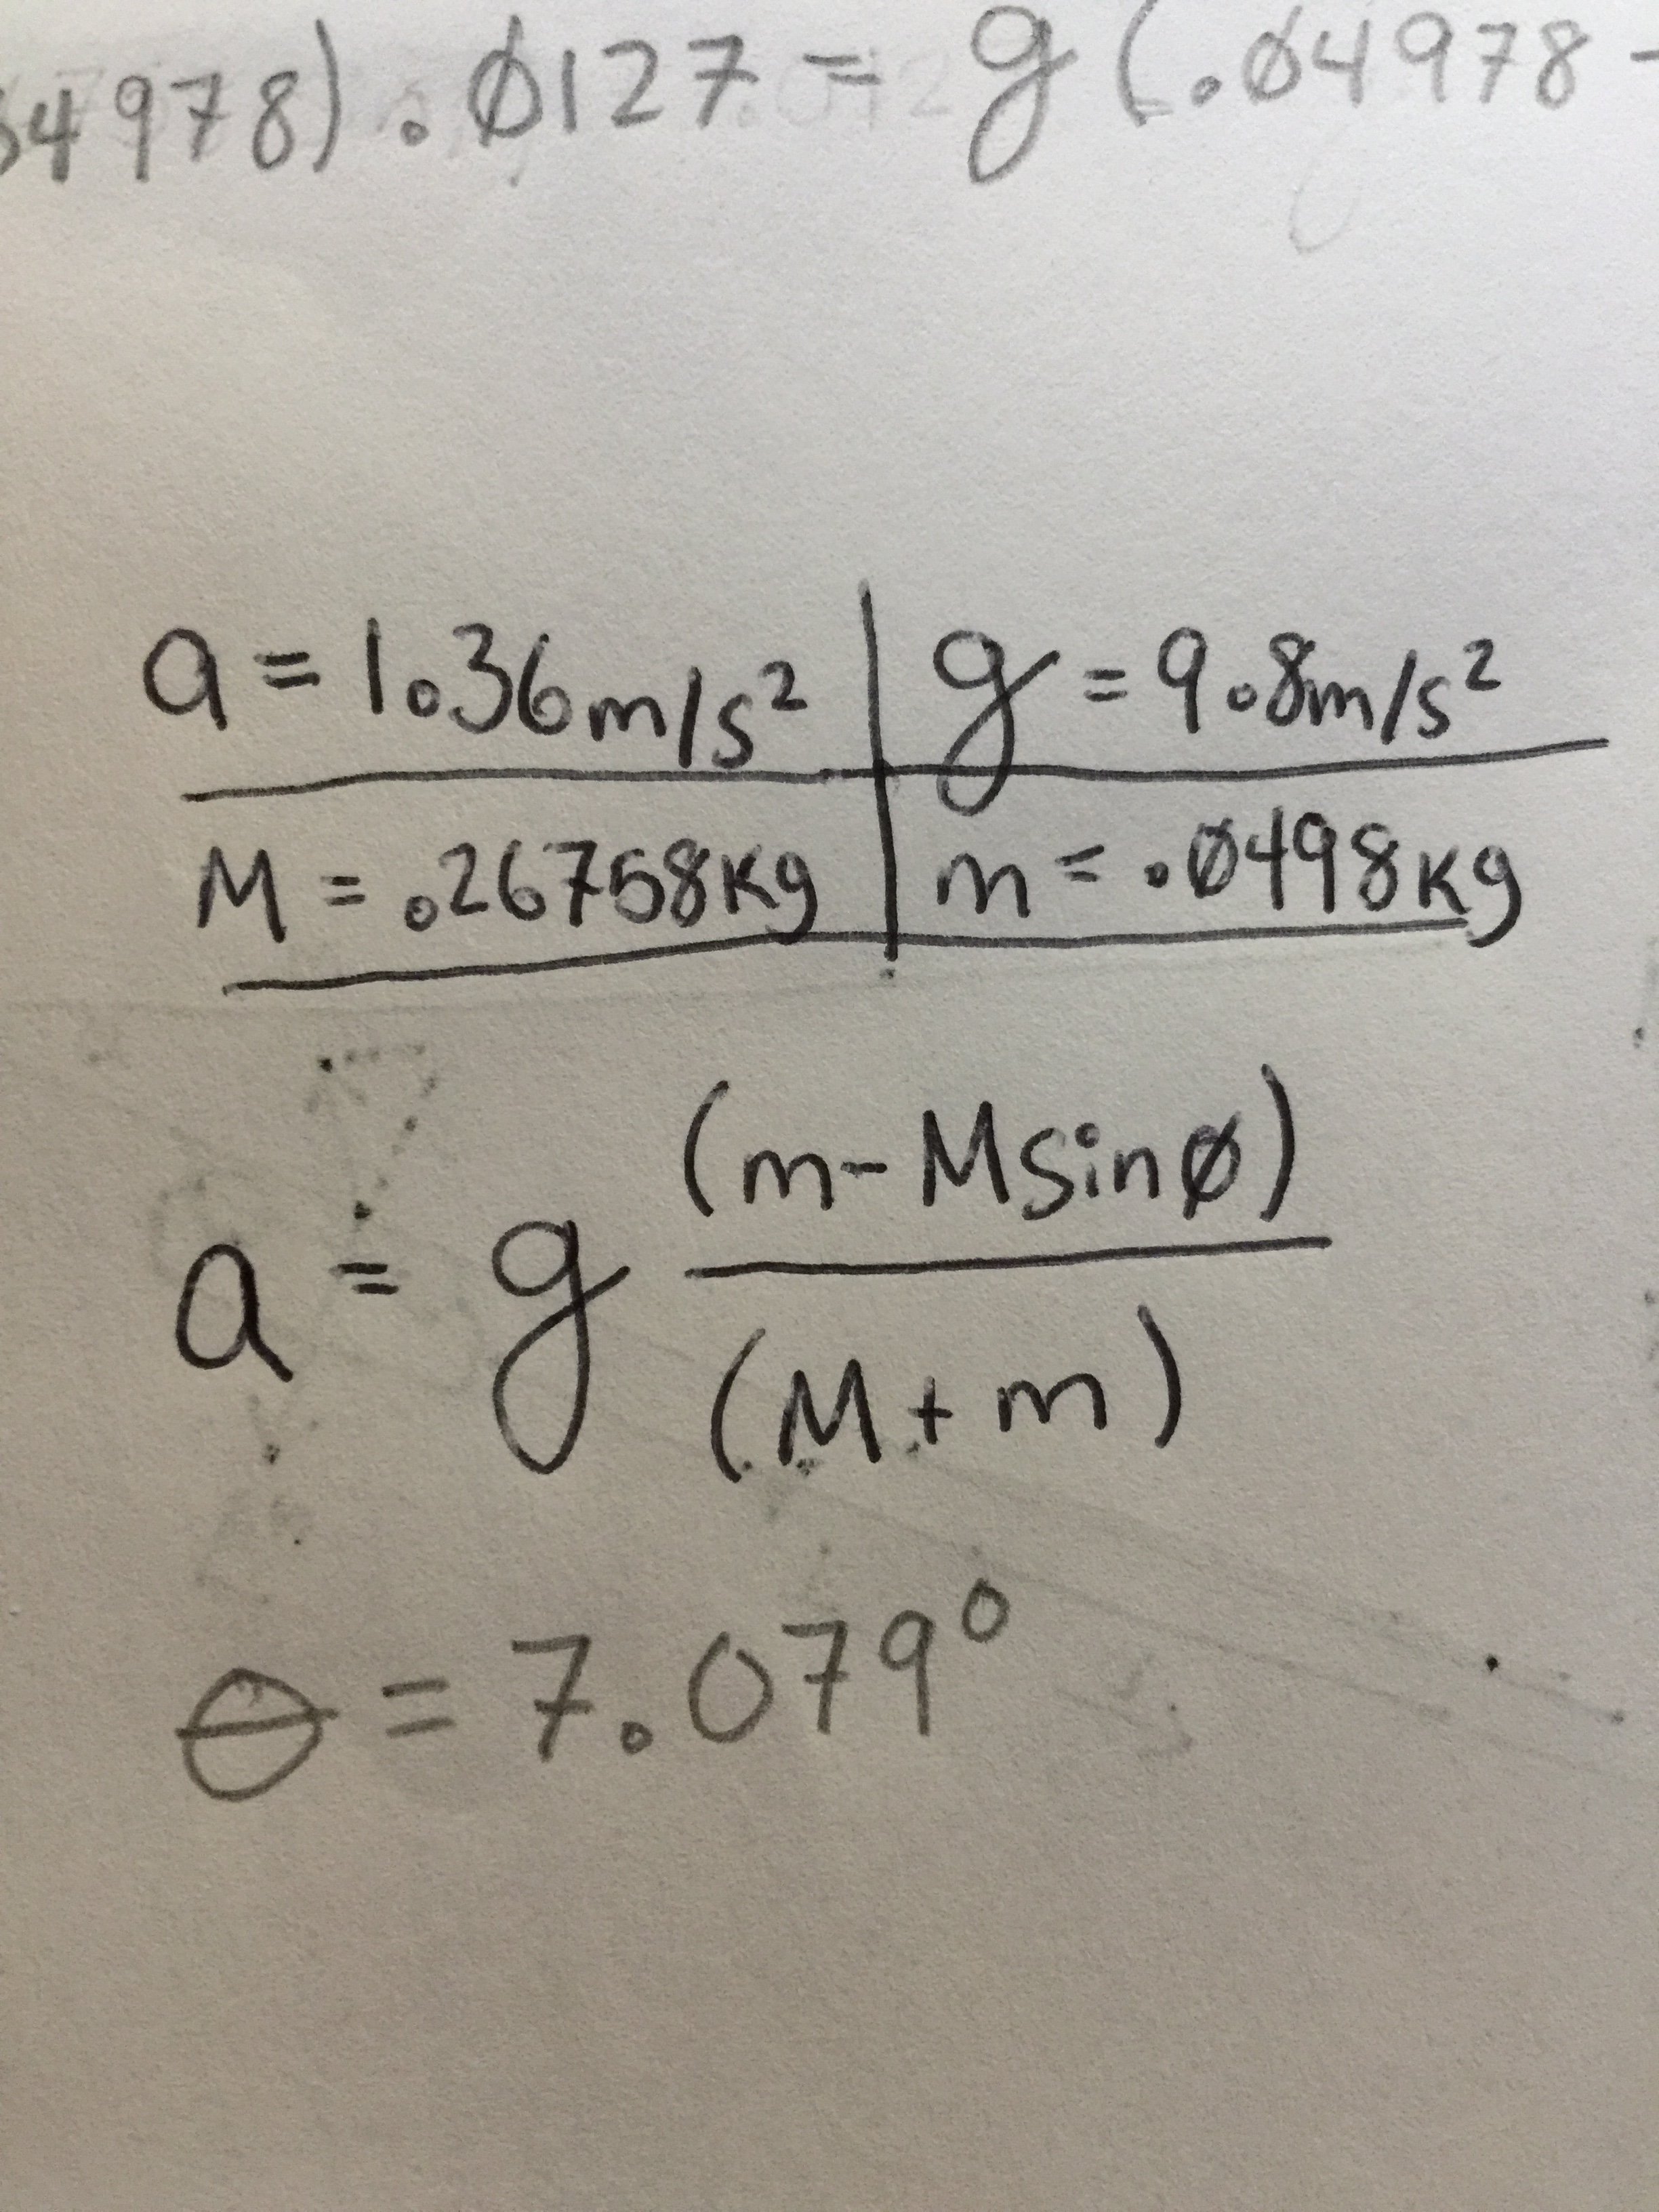 4978) . Ø127 = g (.Ø4978 -
a = 1.36m/s² | g = 9.8m/s²
M = .26758kg | m = .Ø498kg
(m - M sinø)
a = g
(M + m)
θ = 7.079°